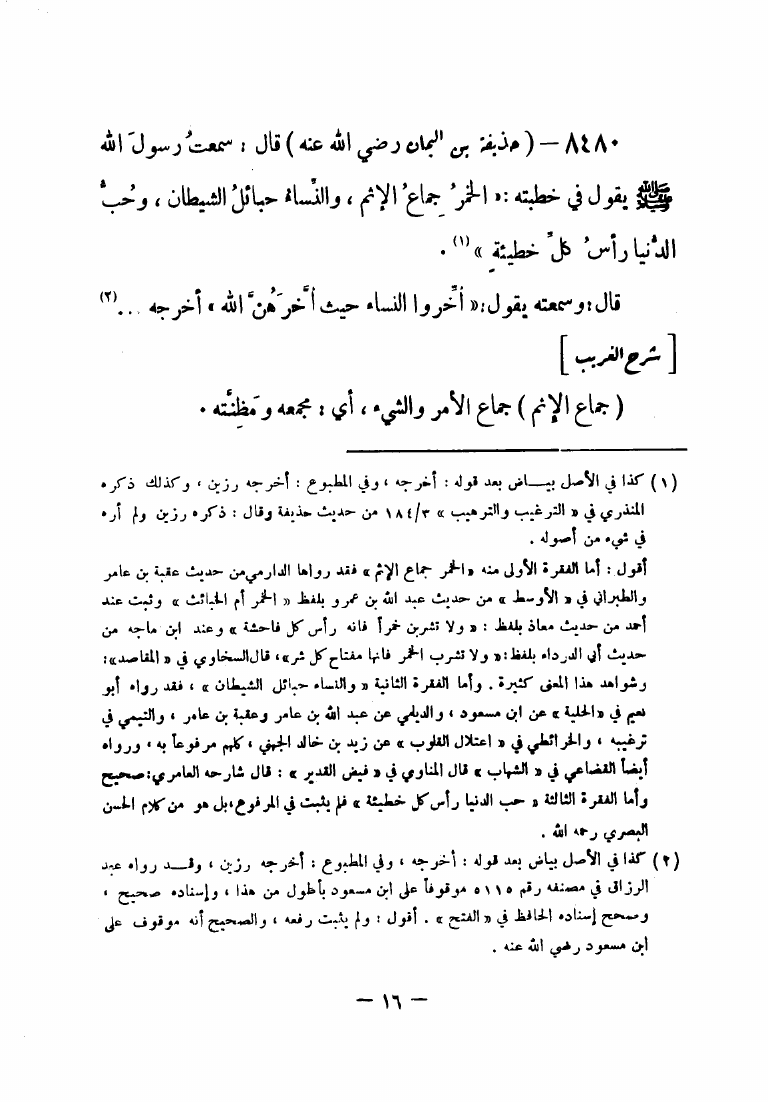 ٨٤٨٠ – ( حذيفة بن اليمان رضي الله عنه ) قال : سمعتُ رسولَ الله
ﷺ يقول في خطبته : « الخمرُ جِماعُ الإثم ، والنِّساءُ حبائلُ الشيطان ، وحُبُّ
الدُّنيا رأسُ كلِّ خطيئةٍ » (١) .
قال : وسمعته يقول : « أخِّروا النساء حيث أخَّرَهُنَّ الله » أخرجه ... (٢)
[ شرح الغريب ]
( جماع الإثم ) جماع الأمر والشيء ، أي : مجمعه ومَظِنَّته .
(١) كذا في الأصل بياض بعد قوله : أخرجه ، وفي المطبوع : أخرجه رزين ، وكذلك ذكره
المنذري في « الترغيب والترهيب » ١٨٤/٣ من حديث حذيفة وقال : ذكره رزين ولم أره
في شيء من أصوله .
أقول : أما الفقرة الأولى منه « الخمر جماع الإثم » فقد رواها الدارمي من حديث عقبة بن عامر
والطبراني في « الأوسط » من حديث عبد الله بن عمرو بلفظ « الخمر أم الخبائث » وثبت عند
أحمد من حديث معاذ بلفظ : « ولا تشربن خمراً فانه رأس كل فاحشة » وعند ابن ماجه من
حديث أبي الدرداء بلفظ : « ولا تشرب الخمر فانها مفتاح كل شر » ، قال السخاوي في « المقاصد » :
وشواهد هذا المعنى كثيرة . وأما الفقرة الثانية « والنساء حبائل الشيطان » ، فقد رواه أبو
نعيم في « الحلية » عن ابن مسعود ، والديلمي عن عبد الله بن عامر وعقبة بن عامر ، والتيمي في
ترغيبه ، والخرائطي في « اعتلال القلوب » عن زيد بن خالد الجهني ، كلهم مرفوعاً به ، ورواه
أيضاً القضاعي في « الشهاب » قال المناوي في « فيض القدير » : قال شارحه العامري : صحيح
وأما الفقرة الثالثة « حب الدنيا رأس كل خطيئة » فلم يثبت في المرفوع ، بل هو من كلام الحسن
البصري رحمه الله .
(٢) كذا في الأصل بياض بعد قوله : أخرجه ، وفي المطبوع : أخرجه رزين ، وقد رواه عبد
الرزاق في مصنفه رقم ٥١١٥ موقوفاً على ابن مسعود بأطول من هذا ، وإسناده صحيح ،
وصحح إسناده الحافظ في « الفتح » . أقول : ولم يثبت رفعه ، والصحيح أنه موقوف على
ابن مسعود رضي الله عنه .
– ١٦ –